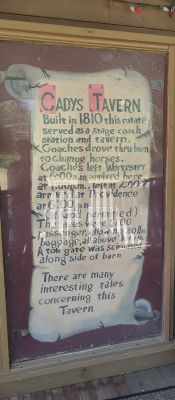 CADYS TAVERN
Built in 1810 this estate
served as a stage coach
station and tavern.
Coaches drove thru barn
to change horses.
Coaches left Worcester
at 6:00am arrived here
at 1:00pm. left at 2:00
arrived at Providence
at 6:00 pm.
(if God permitted)
baggage, all above
A toll gate was
along side of barn
There are many
interesting tales
concerning this
Tavern